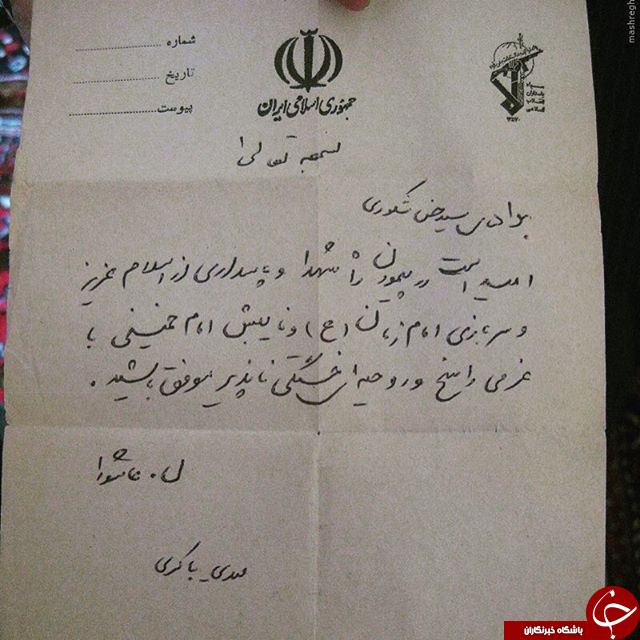 شماره
تاریخ
پیوست
جمهوری اسلامی ایران
بسمه تعالی
برادر سید حسن شکوری
امید است در پیمودن راه شهدا و پاسداری از اسلام عزیز
و سربازی امام زمان (عج) و نایبش امام خمینی با
عزمی راسخ و روحیه‌ای خستگی ناپذیر موفق باشید.
ل. عاشورا
مهدی باکری
باشگاه خبرنگاران
mashregh